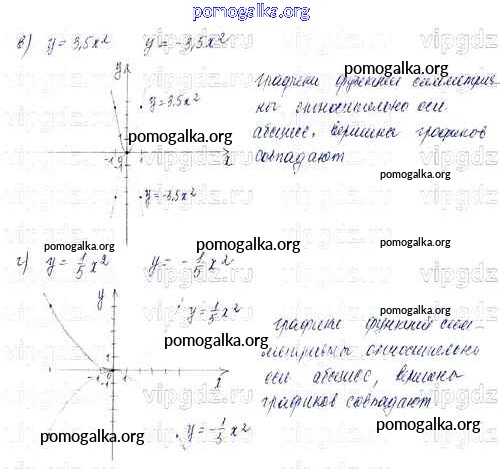 pomogalka.org
в) y = 3,5x² y = -3,5x²
y
y = 3.5x²
графики функций симметрич-
ны относительно оси
абсцисс, вершины графиков
совпадают
pomogalka.org
pomogalka.org
pomogalka.org
-1 0 1
x
y = -3,5x²
pomogalka.org
pomogalka.org
pomogalka.org
pomogalka.org
г) y = 1/5 x² y = -1/5 x²
y
y = 1/5 x²
графики функций сим-
метричны относительно
оси абсцисс, вершины
графиков совпадают
pomogalka.org
pomogalka.org
1
-1 0 1
x
y = -1/5 x²
pomogalka.org
pomogalka.org
pomogalka.org
vipgdz.ru